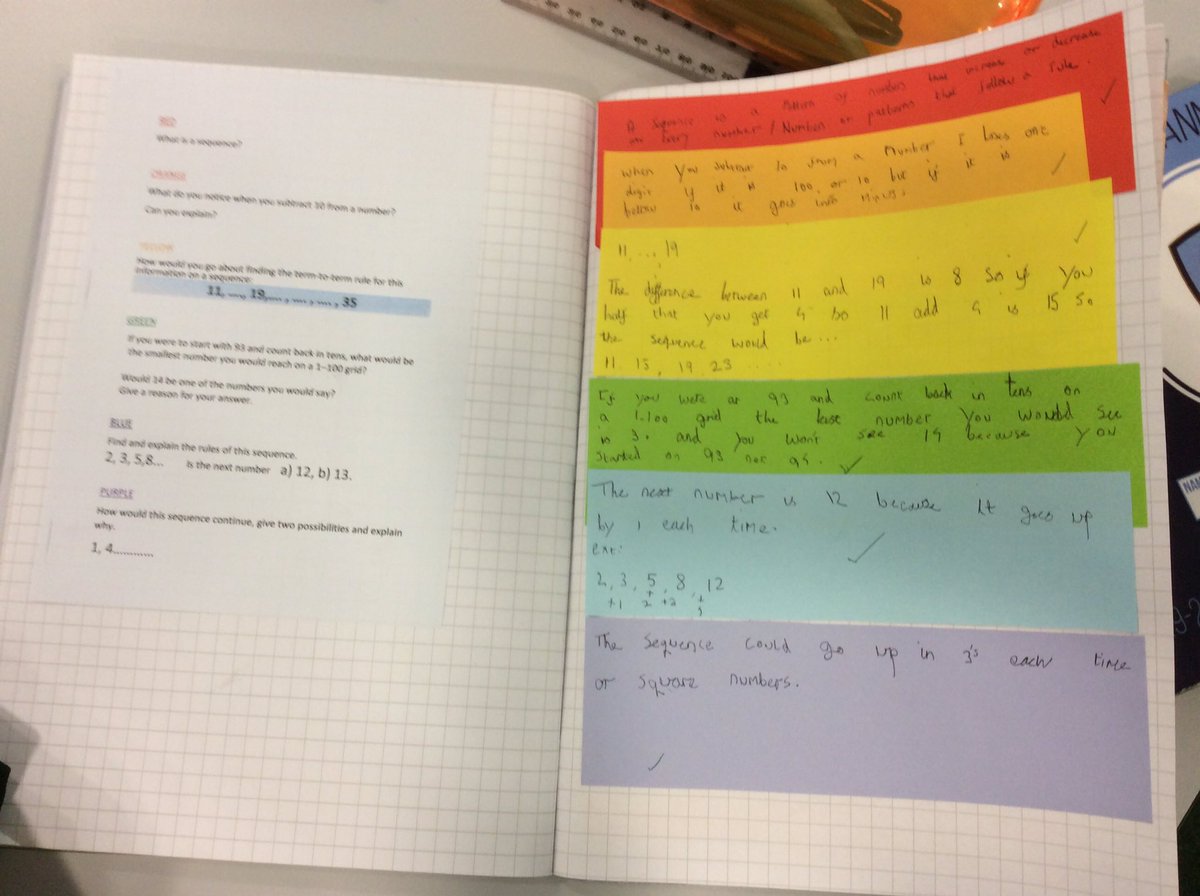 RED
What is a sequence?
ORANGE
What do you notice when you subtract 10 from a number?
Can you explain?
YELLOW
How would you go about finding the term-to-term rule for this
information on a sequence:
11, ..., 19,.... , .... , .... , 35
GREEN
If you were to start with 93 and count back in tens, what would be
the smallest number you would reach on a 1–100 grid?
Would 14 be one of the numbers you would say?
Give a reason for your answer.
BLUE
Find and explain the rules of this sequence.
2, 3, 5,8... Is the next number a) 12, b) 13.
PURPLE
How would this sequence continue, give two possibilities and explain
why.
1, 4............
A sequence is a pattern of numbers that increase or decrease
on every number / Number or patterns that follow a rule.
When you subtract 10 from a number I loses one
digit if it is 100, or 10 but if it is
bellow 10 it goes into minus.
11, ... , 19
The difference between 11 and 19 is 8 so if you
half that you get 4 so 11 add 4 is 15 so
the sequence would be ...
11, 15, 19, 23 .....
If you were at 93 and count back in tens on
a 1-100 grid the last number you would see
is 3. and you won't see 14 because you
started on 93 not 94.
The next number is 12 because it goes up
by 1 each time.
2, 3, 5, 8, 12
The sequence could go up in 3's each time
or square numbers.